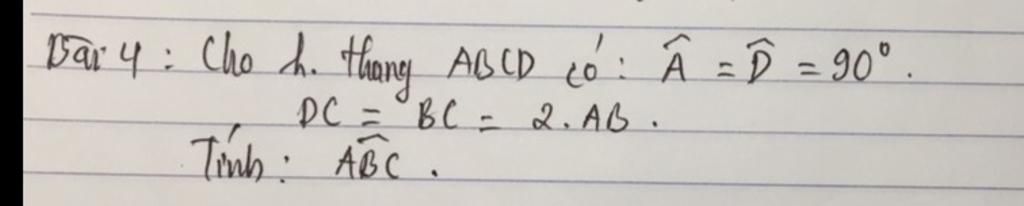 Bài 4 : Cho h. thang ABCD có : Â = D̂ = 90°.
DC = BC = 2.AB.
Tính : AB̂C.